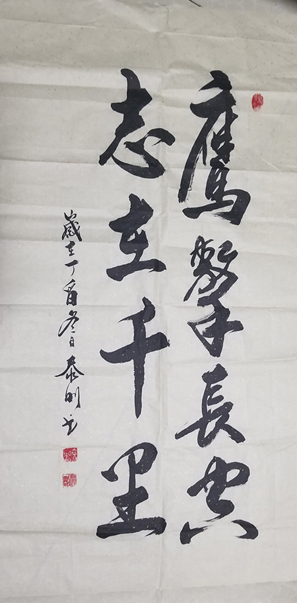 鷹擊長空
志在千里
歲在丁酉冬日泰明书